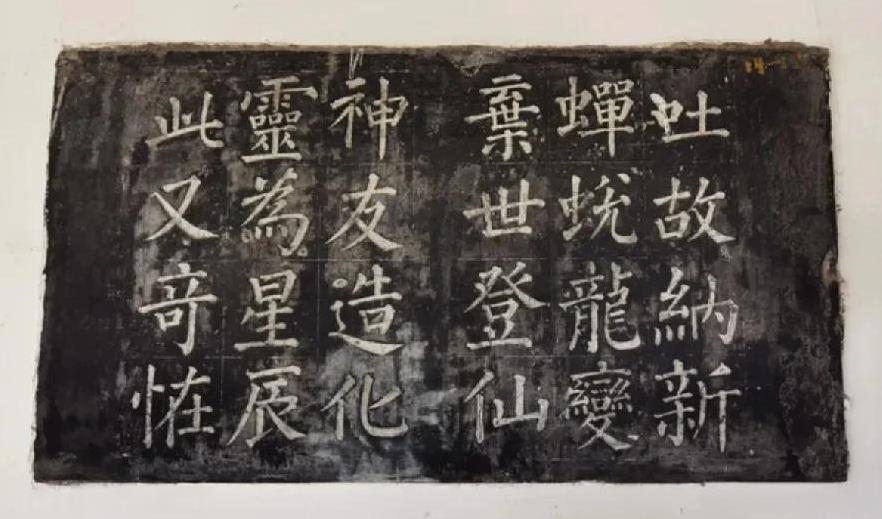 吐故納新
蟬蛻龍變
棄世登仙
神友造化
靈為星辰
此又奇怪